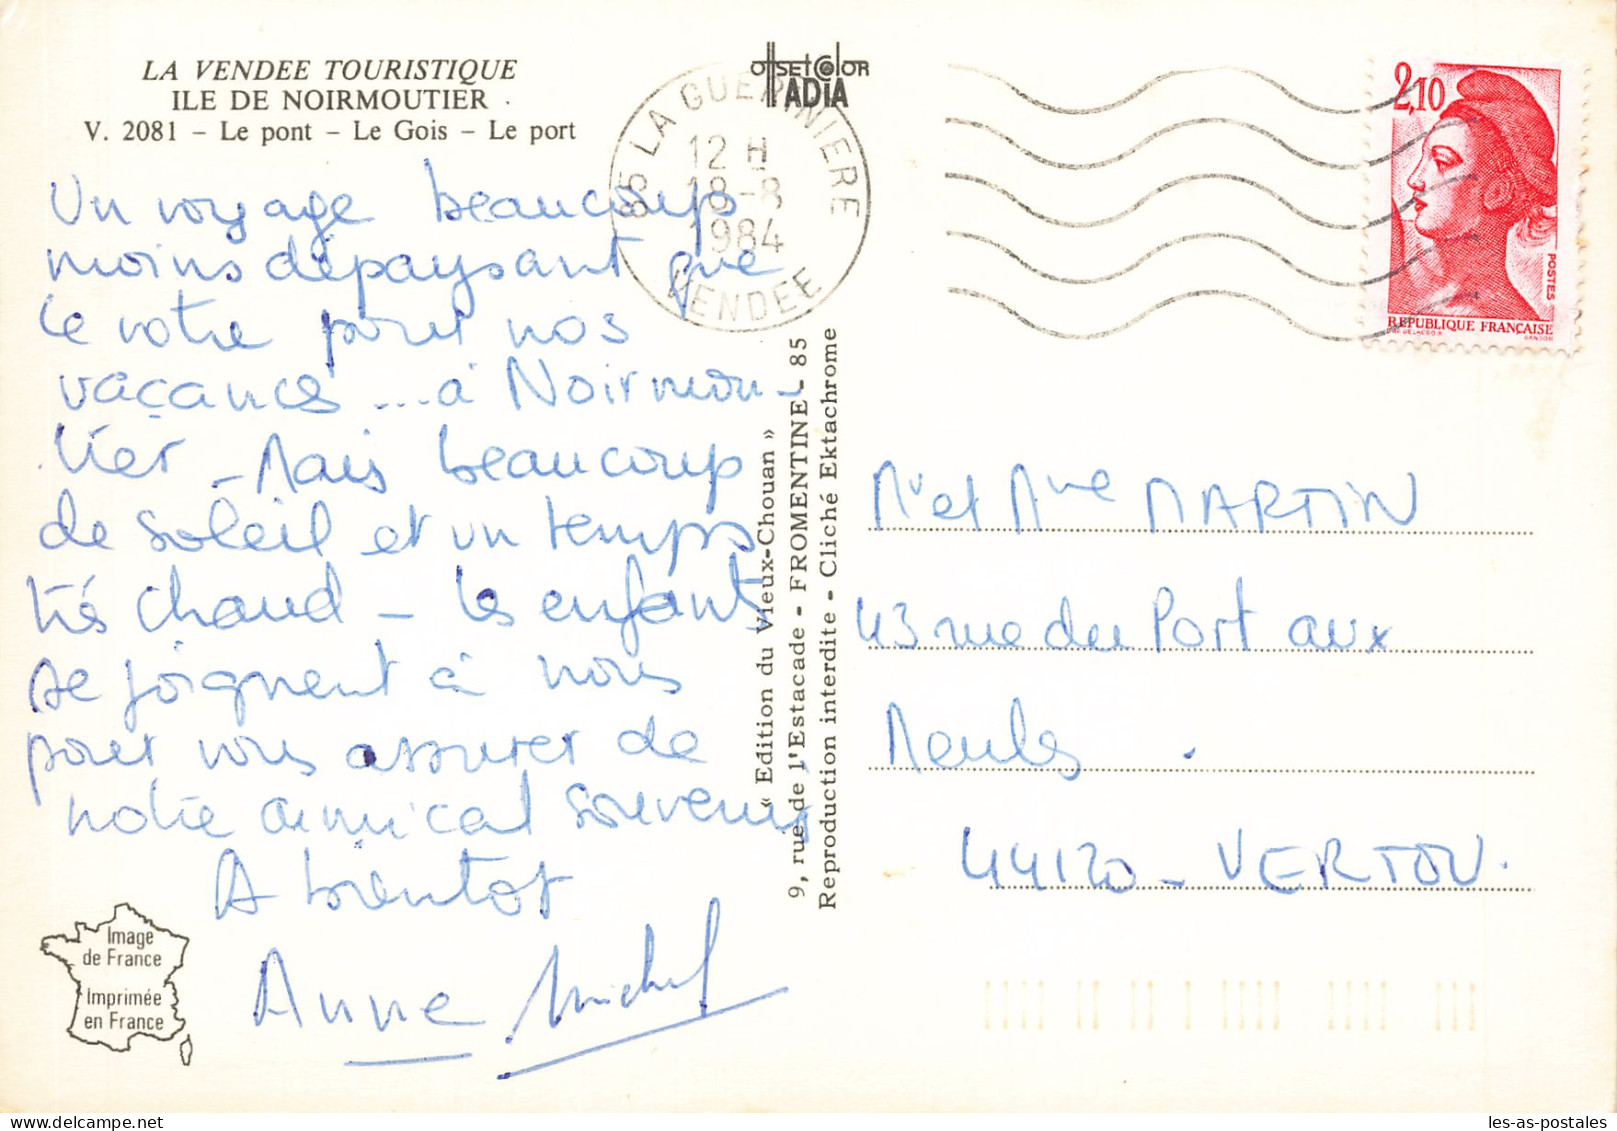 LA VENDEE TOURISTIQUE
ILE DE NOIRMOUTIER
V. 2081 - Le pont - Le Gois - Le port
Un voyage beaucoup
moins dépaysant que
le votre pour nos
vacances ... à Noirmou-
tier - Mais beaucoup
de soleil et un temps
très chaud - les enfants
se joignent à nous
pour vous assurer de
notre amical souvenir
A bientot
Anne Michel
Image
de France
Imprimée
en France
offset color
ADIA
85 LA GUERINIERE
12 H
18-8
1984
VENDEE
« Edition du Vieux-Chouan »
9, rue de l'Estacade - FROMENTINE - 85
Reproduction interdite - Cliché Ektachrome
2,10
POSTES
REPUBLIQUE FRANÇAISE
GANDON
Mr et Mme MARTIN
43 rue du Port aux
Meules.
44120 - VERTOU.
les-as-postales